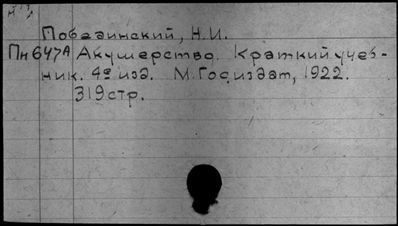 Побединский, Н.И.
Пн647А Акушерство. Краткий учеб-
ник. 4е изд. М. Госиздат, 1922.
319 стр.